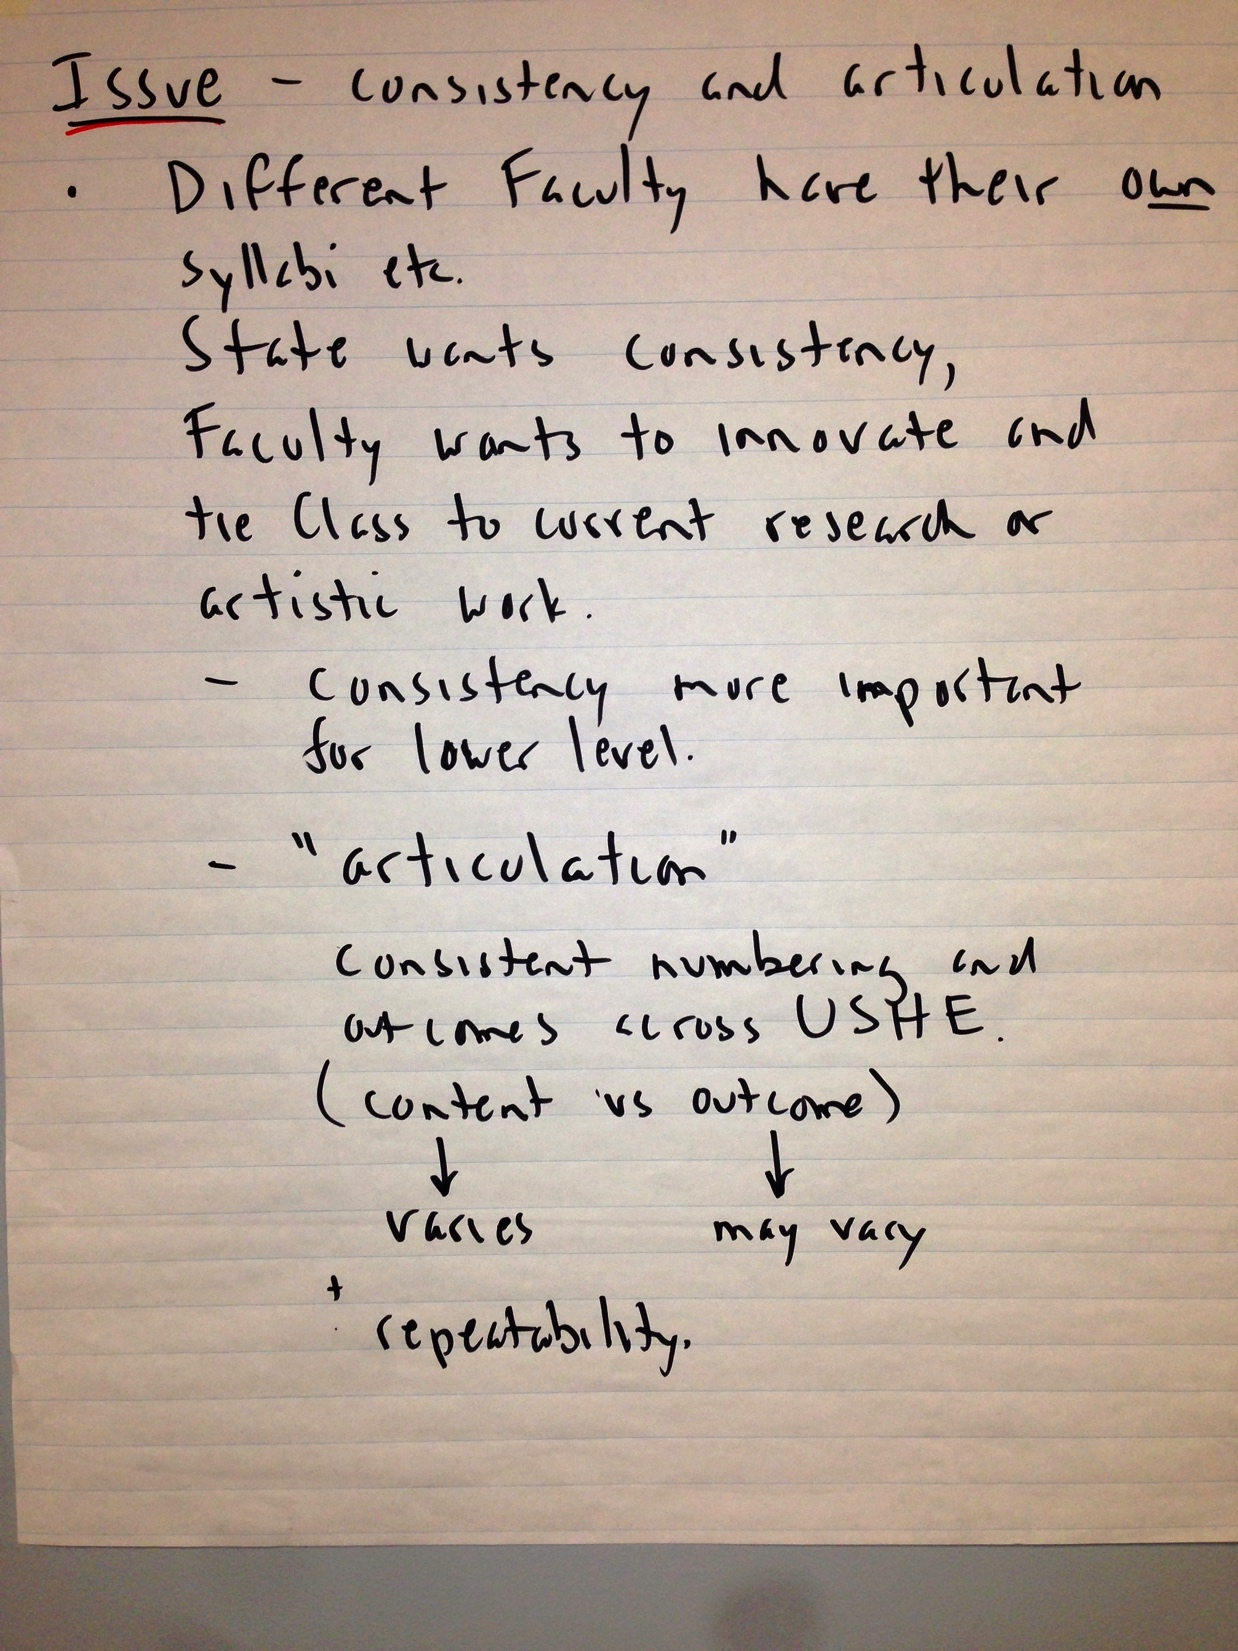 Issue - consistency and articulation
• Different Faculty have their own
syllabi etc.
State wants consistency,
Faculty wants to innovate and
tie Class to current research or
artistic work.
- Consistency more important
for lower level.
- "articulation"
consistent numbering and
outcomes across USHE.
(content vs outcome)
↓ ↓
varies may vary
+
repeatability.